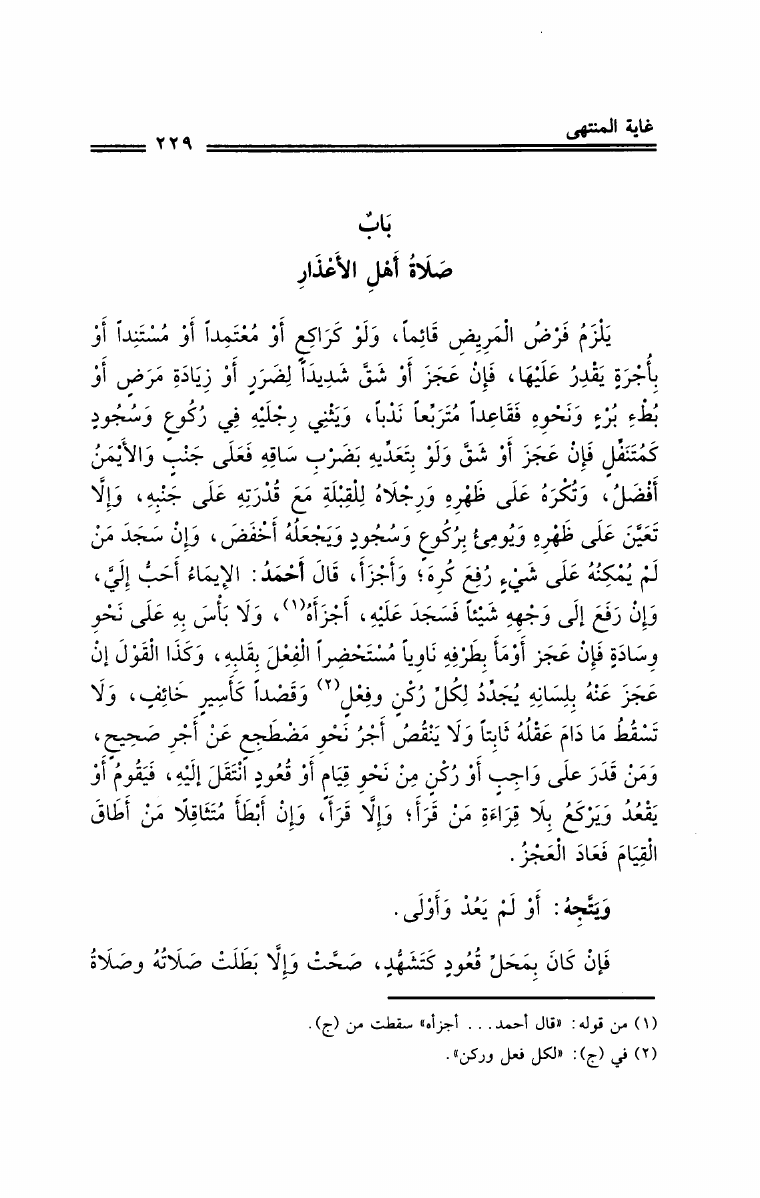 غاية المنتهى
٢٢٩
بَابٌ
صَلَاةُ أَهْلِ الأَعْذَارِ
يَلْزَمُ فَرْضُ الْمَرِيضِ قَائِماً، وَلَوْ كَرَاكِعٍ أَوْ مُعْتَمِداً أَوْ مُسْتَنِداً أَوْ
بِأُجْرَةٍ يَقْدِرُ عَلَيْهَا، فَإِنْ عَجَزَ أَوْ شَقَّ شَدِيدَاً لِضَرَرٍ أَوْ زِيَادَةِ مَرَضٍ أَوْ
بُطْءِ بُرْءٍ وَنَحْوِهِ فَقَاعِداً مُتَرَبِّعاً نَدْباً، وَيَثْنِي رِجْلَيْهِ فِي رُكُوعٍ وَسُجُودٍ
كَمُتَنَفِّلٍ فَإِنْ عَجَزَ أَوْ شَقَّ وَلَوْ بِتَعَدِّيهِ بَضَرْبِ سَاقِهِ فَعَلَى جَنْبٍ وَالأَيْمَنُ
أَفْضَلُ، وَتُكْرَهُ عَلَى ظَهْرِهِ وَرِجْلَاهُ لِلْقِبْلَةِ مَعَ قُدْرَتِهِ عَلَى جَنْبِهِ، وَإِلَّا
تَعَيَّنَ عَلَى ظَهْرِهِ وَيُومِئُ بِرُكُوعٍ وَسُجُودٍ وَيَجْعَلُهُ أَخْفَضَ، وَإِنْ سَجَدَ مَنْ
لَمْ يُمْكِنُهُ عَلَى شَيْءٍ رُفِعَ كُرِهَ؛ وَأَجْزَأَ، قَالَ أَحْمَدُ: الإِيمَاءُ أَحَبُّ إِلَيَّ،
وَإِنْ رَفَعَ إِلَى وَجْهِهِ شَيْئاً فَسَجَدَ عَلَيْهِ، أَجْزَأَهُ(١)، وَلَا بَأْسَ بِهِ عَلَى نَحْوِ
وِسَادَةٍ فَإِنْ عَجَز أَوْمَأَ بِطَرْفِهِ نَاوِياً مُسْتَحْضِراً الْفِعْلَ بِقَلبِهِ، وَكَذَا الْقَوْلَ إنْ
عَجَزَ عَنْهُ بِلِسَانِهِ يُجَدِّدُ لِكُلِّ رُكْنٍ وفِعْلٍ(٢) وَقَصْداً كَأَسِيرٍ خَائِفٍ، وَلَا
تَسْقُطُ مَا دَامَ عَقْلُهُ ثَابِتاً وَلَا يَنْقُصُ أَجْرُ نَحْوِ مَضْطَجِعٍ عَنْ أَجْرِ صَحِيحٍ،
وَمَنْ قَدَرَ على وَاجِبٍ أَوْ رُكْنٍ مِنْ نَحْوِ قِيَامٍ أَوْ قُعُودٍ انْتَقَلَ إِلَيْهِ، فَيَقُومُ أَوْ
يَقْعُدُ وَيَرْكَعُ بِلَا قِرَاءَةٍ مَنْ قَرَأَ؛ وَإِلَّا قَرَأَ، وَإِنْ أَبْطَأَ مُتَثَاقِلًا مَنْ أَطَاقَ
الْقِيَامَ فَعَادَ الْعَجْزُ.
وَيَتَّجِهُ: أَوْ لَمْ يَعُدْ وَأَوْلَى.
فَإِنْ كَانَ بِمَحَلِّ قُعُودٍ كَتَشَهُّدٍ، صَحَّتْ وَإِلَّا بَطَلَتْ صَلَاتُهُ وصَلَاةُ
(١) من قوله: «قال أحمد... أجزأه» سقطت من (ج).
(٢) في (ج): «لكل فعل وركن».